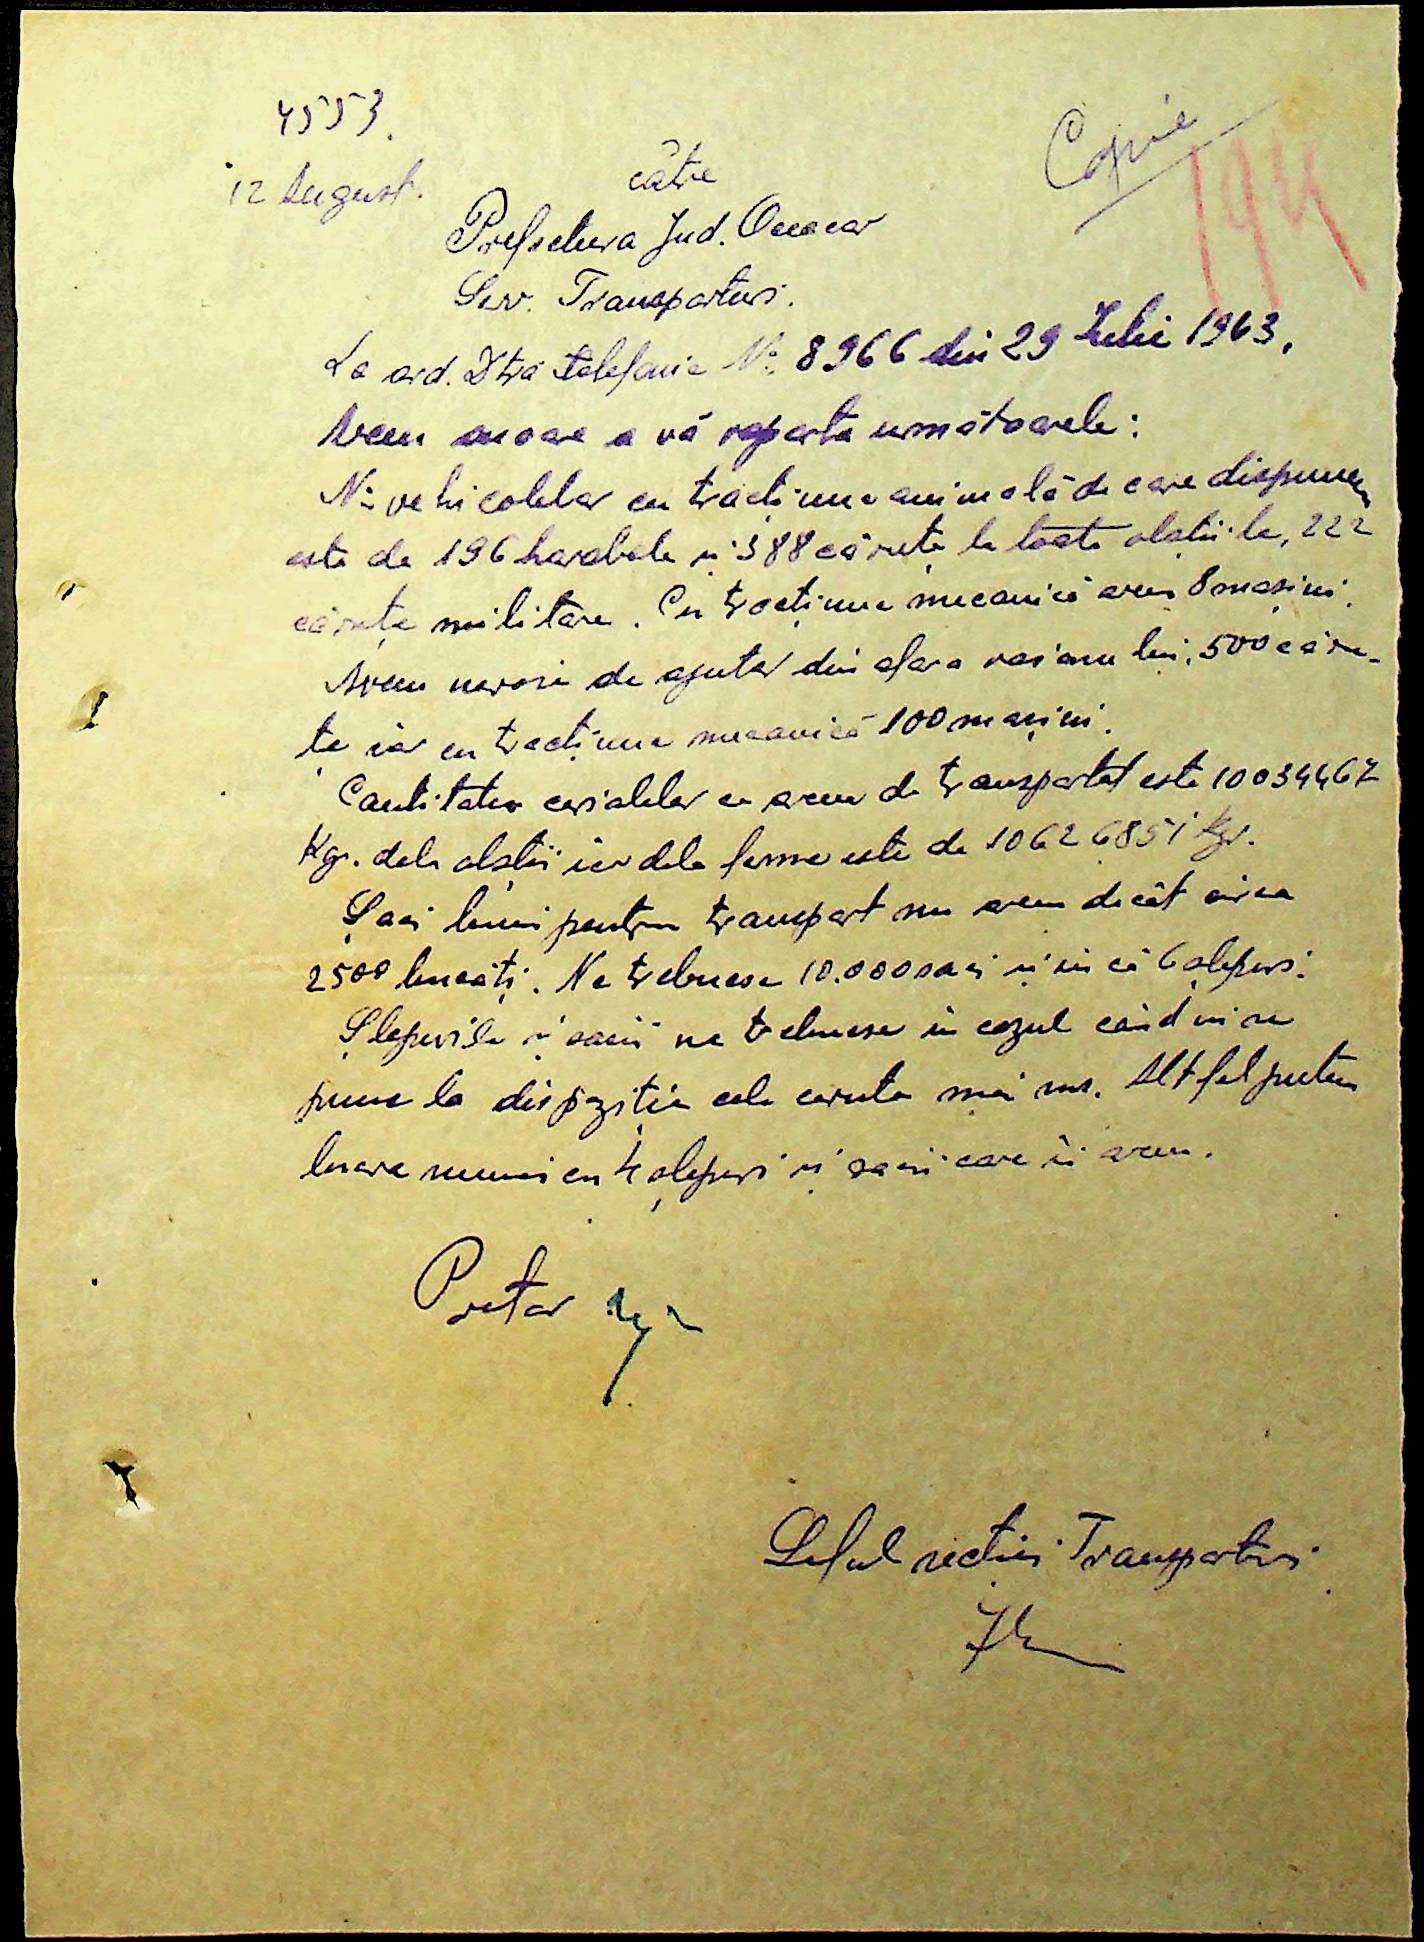 4553.
Copie
194
12 August.
către
Prefectura Jud. Oceacov
Serv. Transporturi.
La ord. Dtră telefonic No: 8966 din 29 Iulie 1943.
Avem onoare a vă raporta următoarele:
No: vehicolelor cu tracțiune animală de care dispunem
este de 196 harabale și 388 căruțe la toate obștiile, 222
căruțe militare. Cu tracțiune mecanică avem 8 mașini.
Avem nevoie de ajutor din afara raionu lui, 500 căru-
țe iar cu tracțiune mecanică 100 mașini.
Cantitatea cerialelor ce avem de transportat este 10034467
Kg. dela obștii iar dela ferme este de 10626851 Kgr.
Saci buni pentru transport nu avem decât circa
2500 bucăți. Ne trebuesc 10.000 saci și încă 6 șlepuri.
Șlepurile și sacii ne trebuesc în cazul când ni se
pune la dispoziție cele cerute mai sus. Altfel putem
lucra numai cu 4 șlepuri și sacii care îi avem.
Pretor
Șeful secției Transporturi